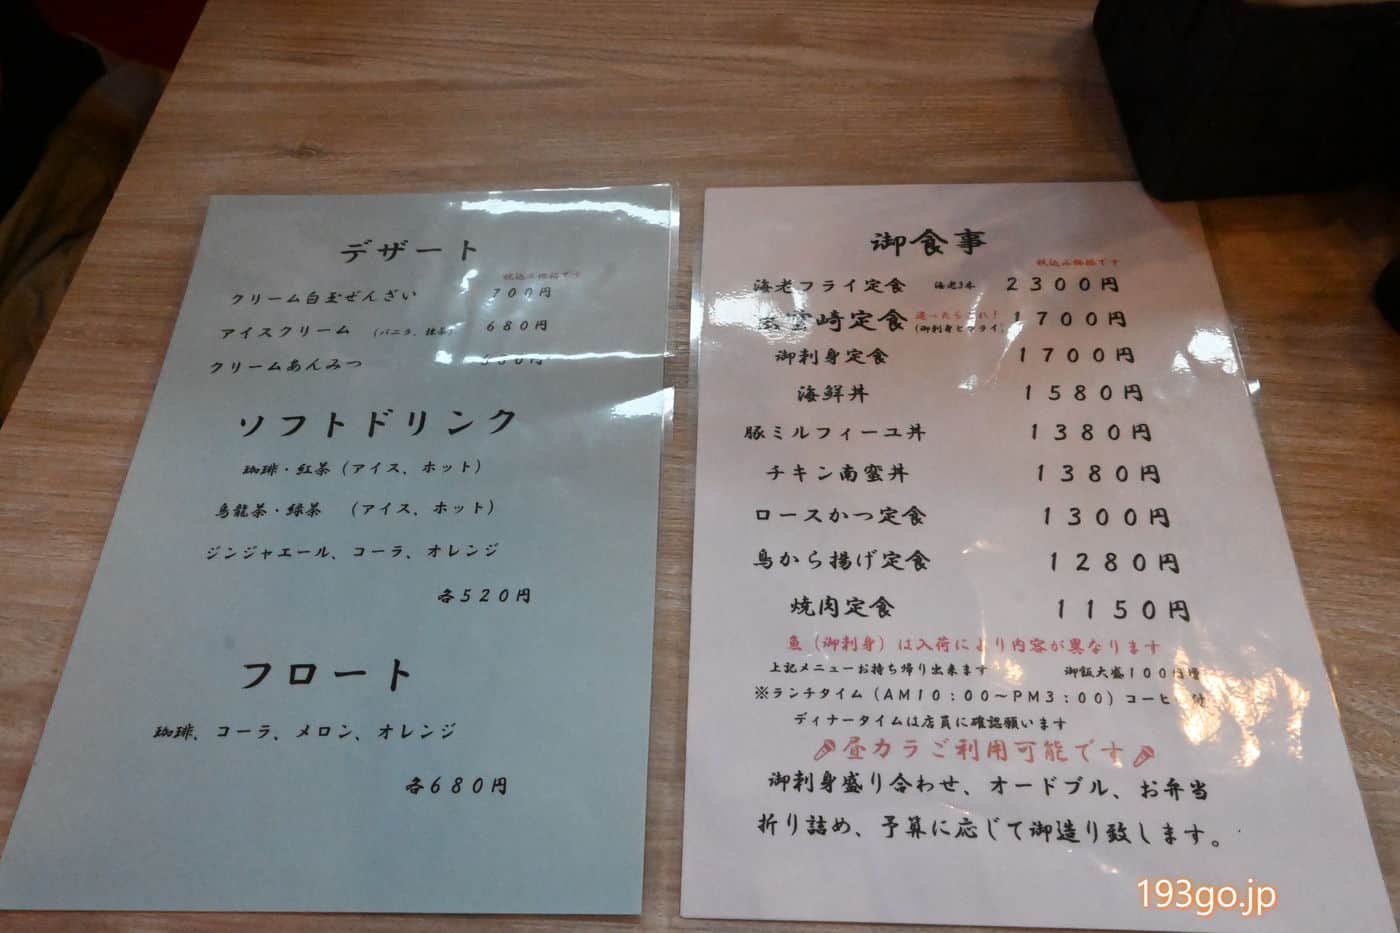 デザート
税込み価格です
クリーム白玉ぜんざい 700円
アイスクリーム (バニラ、抹茶) 680円
クリームあんみつ
ソフトドリンク
珈琲・紅茶(アイス、ホット)
烏龍茶・緑茶 (アイス、ホット)
ジンジャエール、コーラ、オレンジ
各520円
フロート
珈琲、コーラ、メロン、オレンジ
各680円
御食事
税込み価格です
海老フライ定食 海老3本 2300円
雲崎定食 迷ったらこれ! (御刺身とフライ) 1700円
御刺身定食 1700円
海鮮丼 1580円
豚ミルフィーユ丼 1380円
チキン南蛮丼 1380円
ロースかつ定食 1300円
鳥から揚げ定食 1280円
焼肉定食 1150円
魚(御刺身)は入荷により内容が異なります
上記メニューお持ち帰り出来ます 御飯大盛100円増
※ランチタイム(AM10:00~PM3:00)コーヒー付
ディナータイムは店員に確認願います
昼カラご利用可能です
御刺身盛り合わせ、オードブル、お弁当
折り詰め、予算に応じて御造り致します。
193go.jp